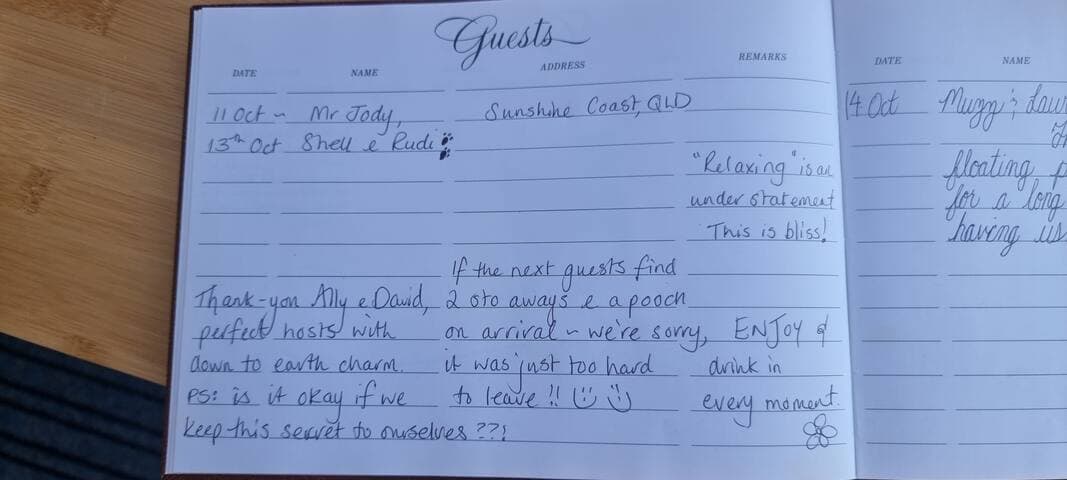 Guests
DATE NAME ADDRESS REMARKS
11 Oct ~ Mr Jody, Sunshine Coast, QLD
13th Oct Shell e Rudi
"Relaxing" is an
under statement
This is bliss!
Thank-you Ally e David,
perfect hosts with
down to earth charm.
PS: is it okay if we
keep this secret to ourselves ??!
If the next guests find
2 sto aways e a pooch
on arrival ~ we're sorry,
it was just too hard
to leave !!
ENJOY &
drink in
every moment.
DATE NAME
14 Oct Mugg &
floating
for a long
having us